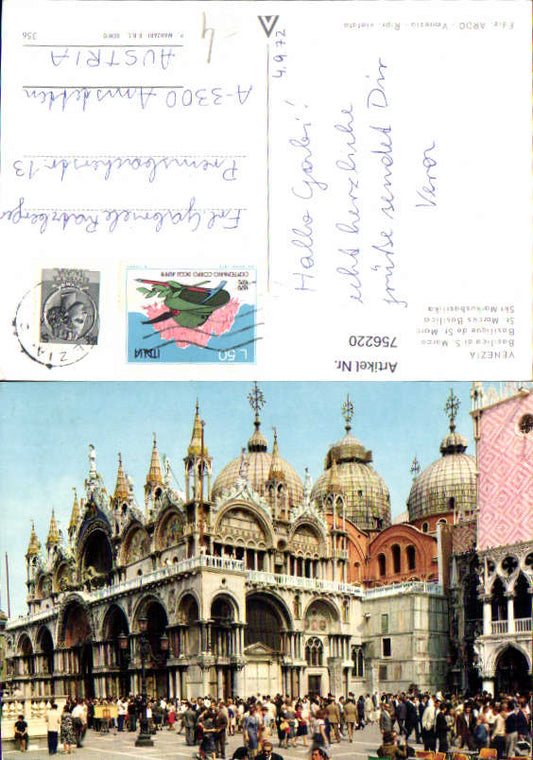 VENEZIA
Basilica di S. Marco
Basilique de St Marc
St Marcus Basilica
Skt Markusbasilika
Ediz. ARDO - Venezia - Ripr. vietata
356
4.9.72
Hallo Gabi!
echt herzliche
grüße sendet Dir
Vera
Frl. Gabriele
13
A-3300 Amstetten
AUSTRIA
1872 1972
CENTENARIO CORPO DEGLI ALPINI
ITALIA
L.50
Artikel Nr.
756220